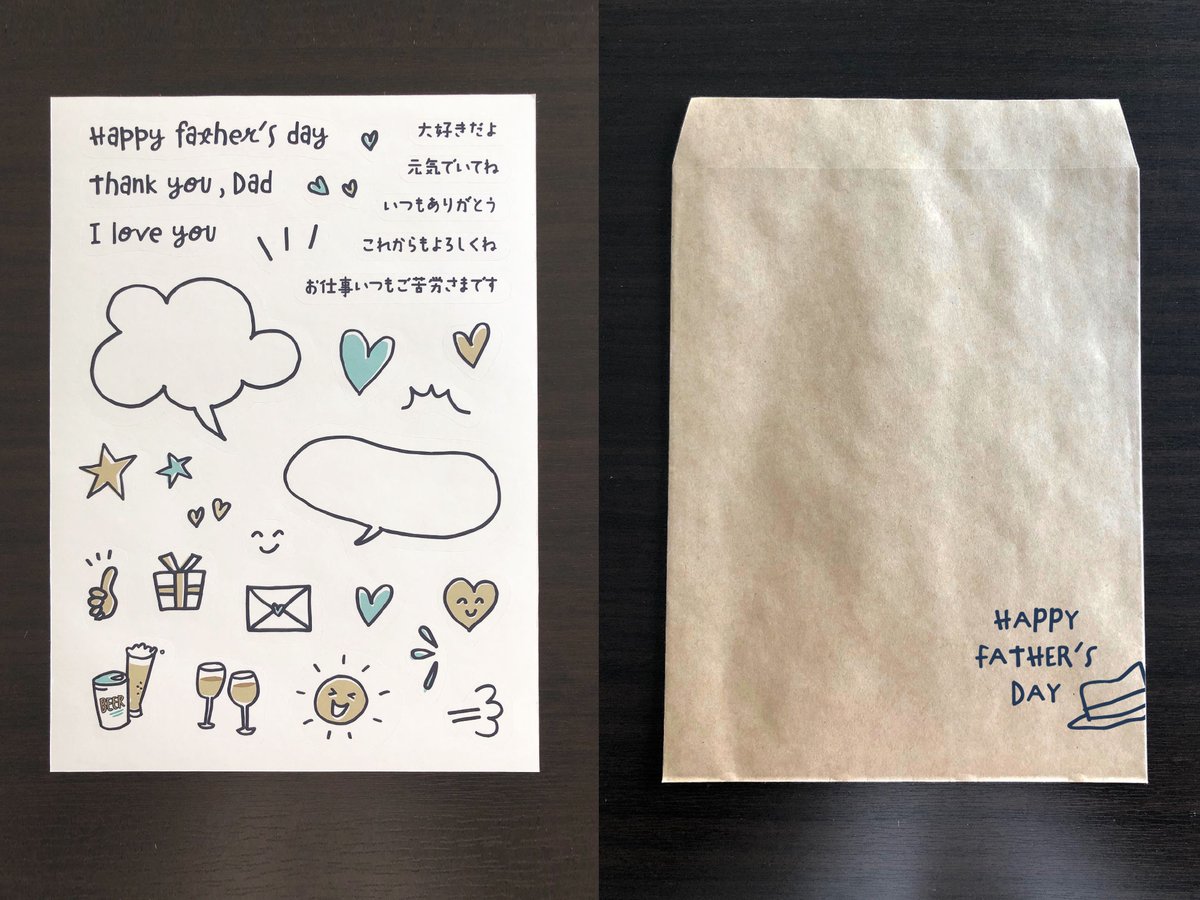 Happy father's day
thank you, Dad
I love you
大好きだよ
元気でいてね
いつもありがとう
これからもよろしくね
お仕事いつもご苦労さまです
BEER
HAPPY
FATHER'S
DAY